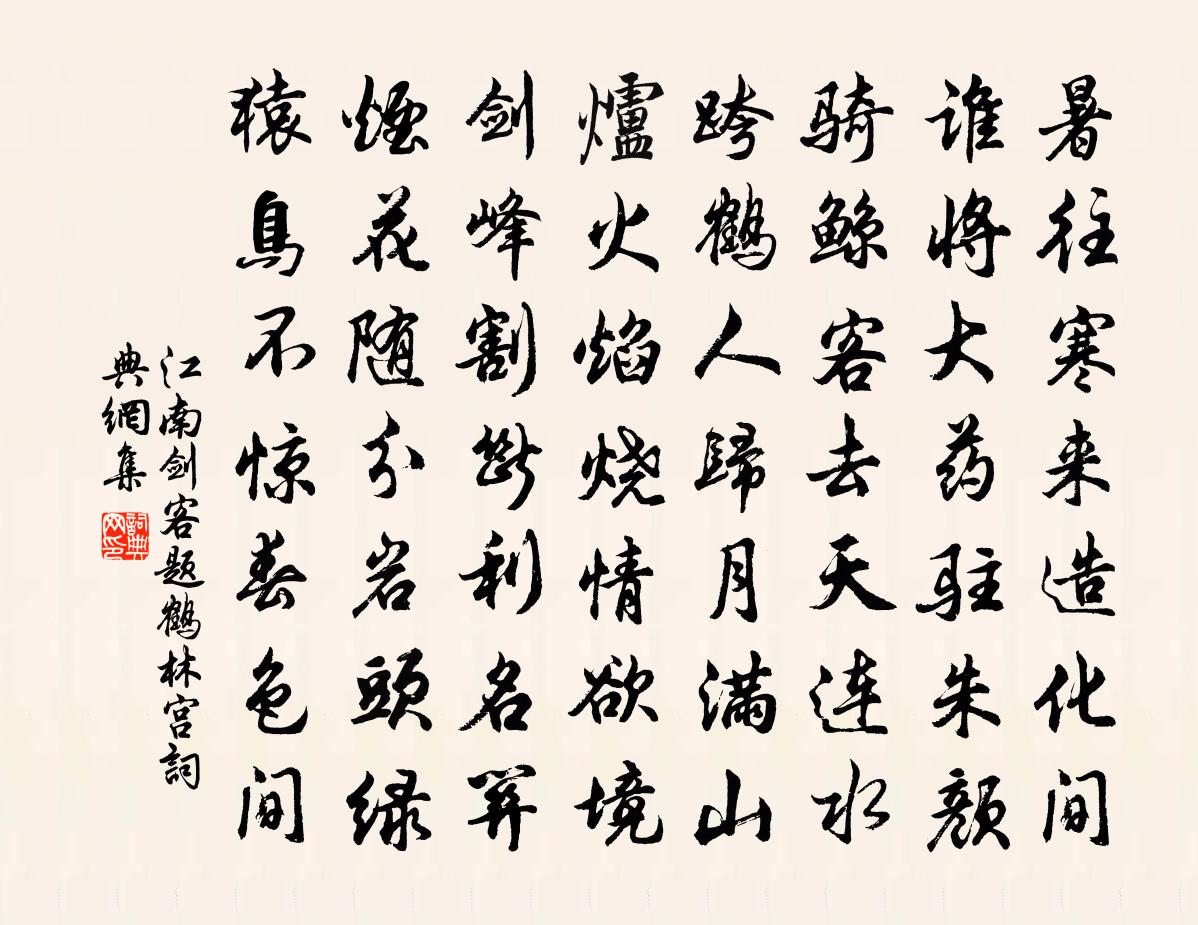 暑往寒来造化间
谁将大药驻朱颜
骑鲸客去天连水
跨鹤人歸月满山
爐火焰烧情欲境
剑峰割断利名関
煙花随分岩頭绿
猿鳥不惊春色间
江南剑客题鹤林宫詞
典網集
詞典
网印